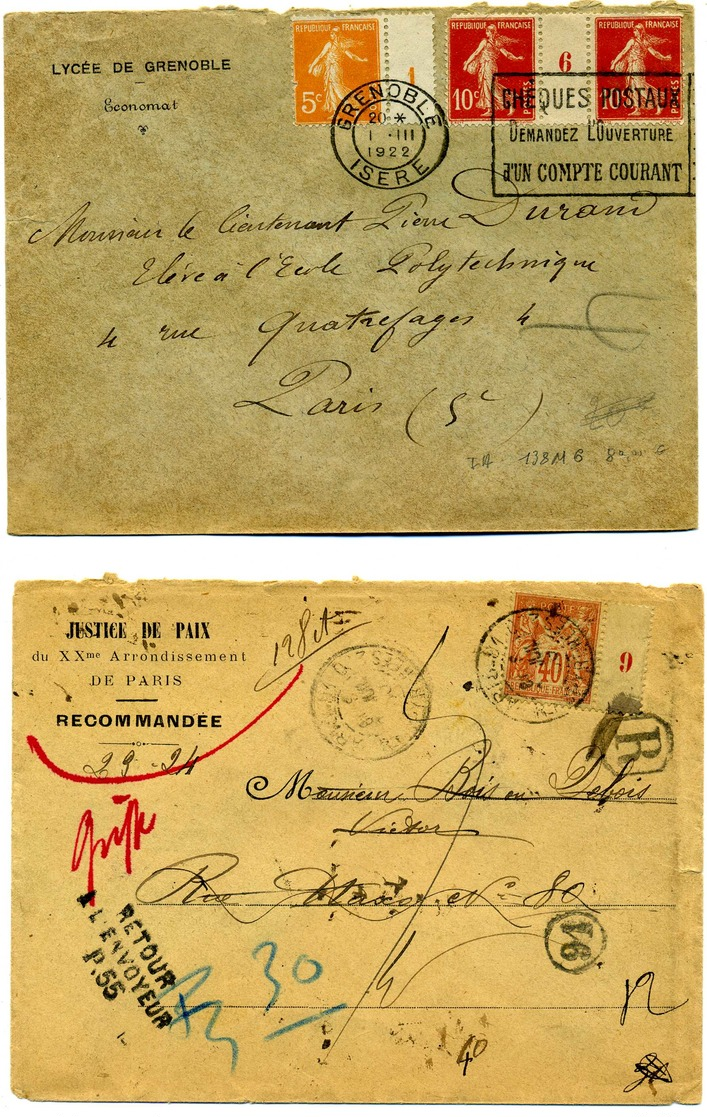 LYCÉE DE GRENOBLE
Economat
REPUBLIQUE FRANÇAISE
5c
1
REPUBLIQUE FRANÇAISE
10c
POSTES
6
REPUBLIQUE FRANÇAISE
10c
POSTES
GRENOBLE
20 *
1 · III
1922
ISERE
CHEQUES POSTAUX
DEMANDEZ L'OUVERTURE
d'UN COMPTE COURANT
Monsieur le lieutenant Pierre Durand
Elève à l'Ecole Polytechnique
4 rue Quatrefages 4
Paris (5e)
138M6
JUSTICE DE PAIX
du XXme Arrondissement
DE PARIS
RECOMMANDÉE
29-24
40
9
R
Monsieur Bois ou Debois
Victor
Rue No 80
RETOUR
A L'ENVOYEUR
P.55
30
91
40